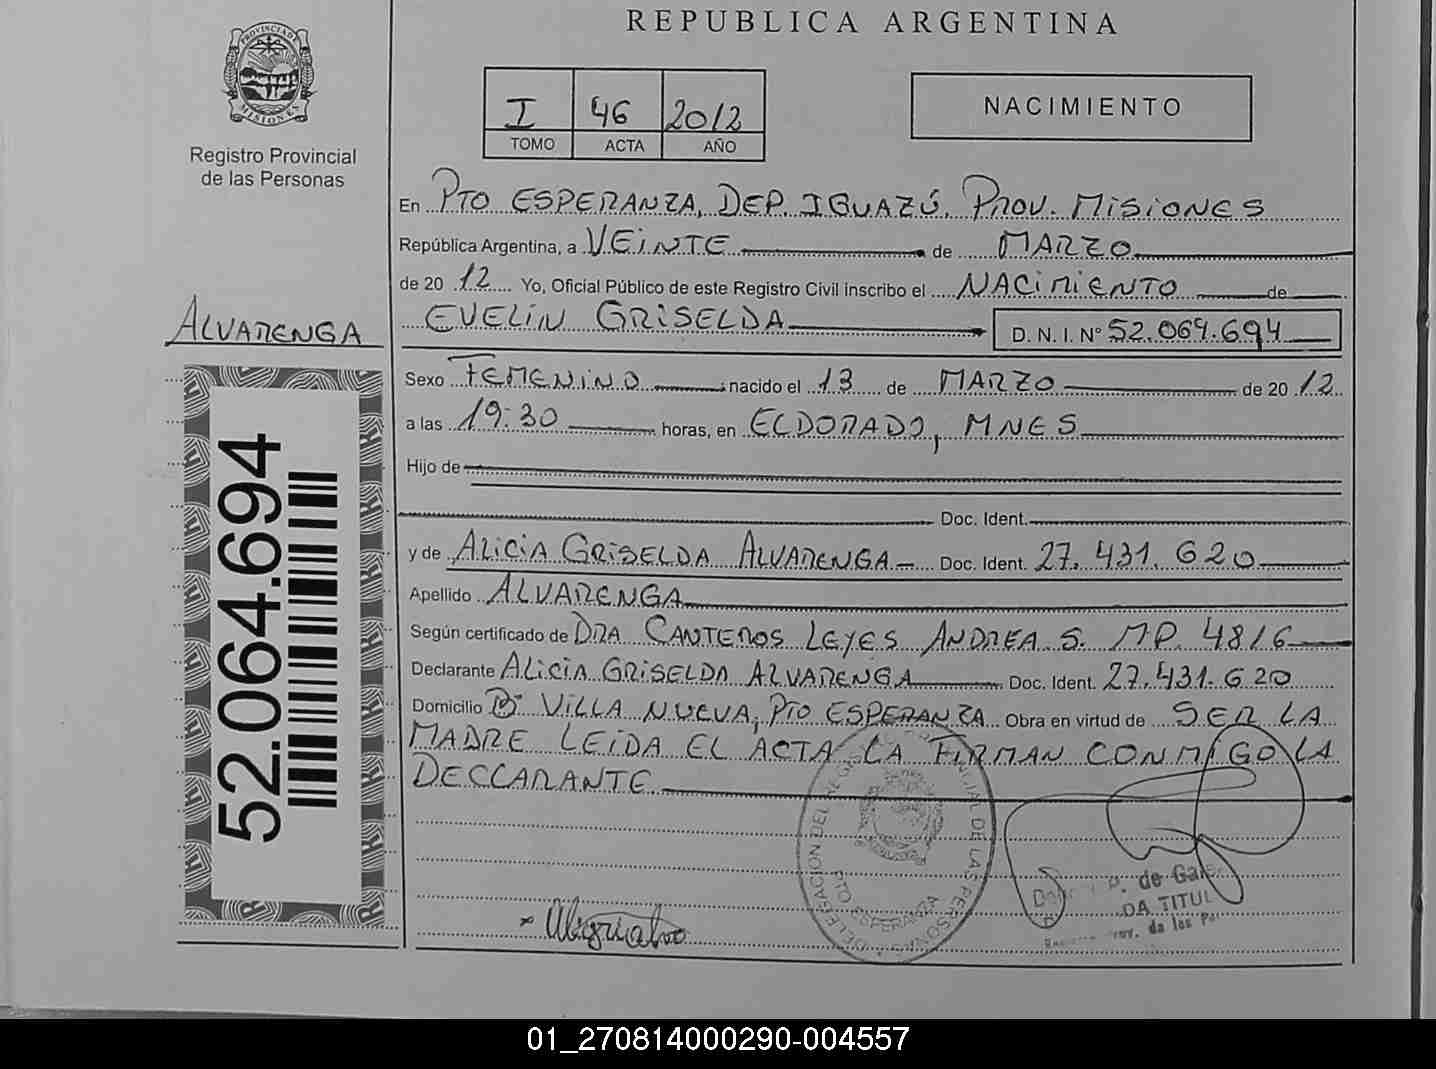 REPUBLICA ARGENTINA
PROVINCIA DE MISIONES
Registro Provincial
de las Personas
I 46 2012
TOMO ACTA AÑO
NACIMIENTO
En PTO ESPERANZA, DEP. IGUAZÚ, PROV. MISIONES
República Argentina, a VEINTE de MARZO
de 2012 Yo, Oficial Público de este Registro Civil inscribo el NACIMIENTO de
ALVARENGA
EVELIN GRISELDA D. N. I. N° 52.064.694
Sexo FEMENINO nacido el 13 de MARZO de 2012
a las 19:30 horas, en ELDORADO, MNES
Hijo de
Doc. Ident.
y de ALICIA GRISELDA ALVARENGA Doc. Ident. 27.431.620
Apellido ALVARENGA
Según certificado de DRA CANTEROS LEYES ANDREA S. MP. 4816
Declarante ALICIA GRISELDA ALVARENGA Doc. Ident. 27.431.620
Domicilio B° VILLA NUEVA, PTO ESPERANZA Obra en virtud de SER LA
MADRE LEIDA EL ACTA LA FIRMAN CONMIGO LA
DECLARANTE
52.064.694
DELEGACION DEL REGISTRO PROVINCIAL DE LAS PERSONAS
PTO ESPERANZA
P. de
DA TITUL
de las
01_270814000290-004557